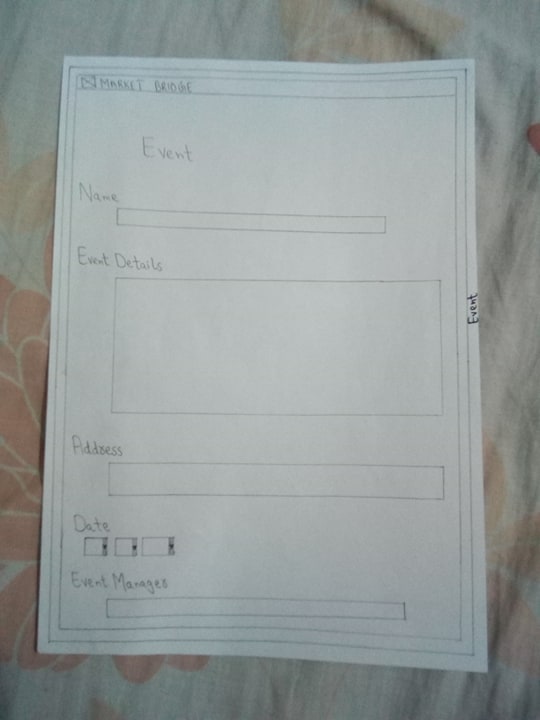 MARKET BRIDGE
Event
Name
Event Details
Event
Address
Date
Event Manager